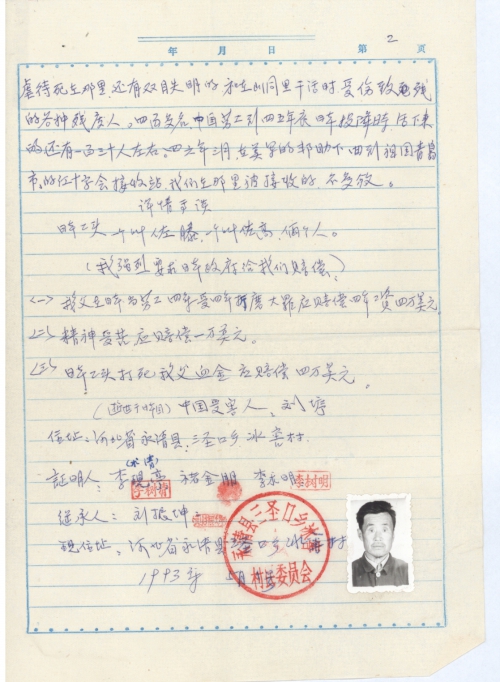 年 月 日 第 2 页
虐待死在那里.还有双目失明的和在山洞里干活时受伤致残
的各种残废人。四百多名中国劳工到四五年底日本投降时.活下来
的还有一百三十人左右。四六年三月.在美军的邦助下回到祖国青岛
市.的红十字会接收站.我们在那里被接收的.不多叙。
详情面谈
日本工头一个叫佐藤.一个叫 高.俩个人。
(我强烈要求日本政府给我们赔偿.)
(一) 我父在日本当劳工四年受四年折磨大难应赔偿四年工资四万美元
(二) 精神受苦应赔偿一万美元。
(三) 日本工头打死我父血金应赔偿四万美元。
中国受害人.刘
住址.河北省永清县.三圣口乡冰窖村.
证明人: 李 金朋 李树明
继承人: 刘振坤
现住址.河北省永清县三圣口乡冰窖村
1993年 月
永清县三圣口乡冰窖村村民委员会